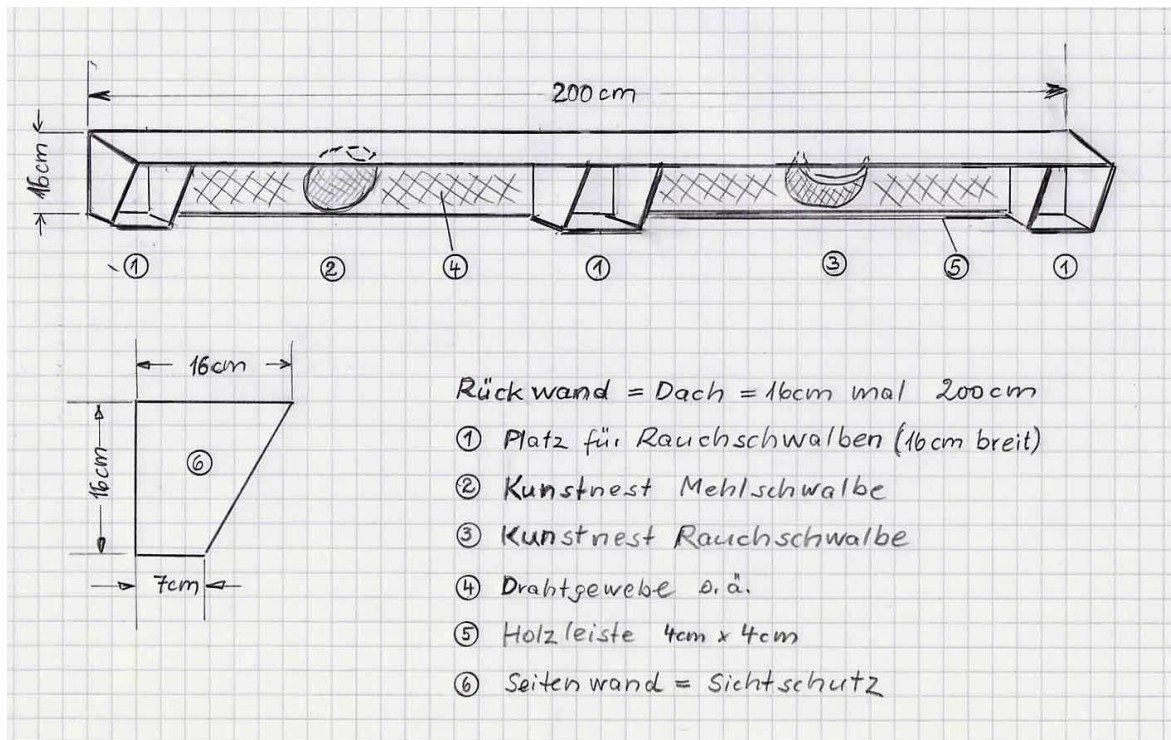 200cm
16cm
① ② ④ ① ③ ⑤ ①
16cm
16cm
⑥
7cm
Rückwand = Dach = 16cm mal 200cm
① Platz für Rauchschwalben (16cm breit)
② Kunstnest Mehlschwalbe
③ Kunstnest Rauchschwalbe
④ Drahtgewebe o.ä.
⑤ Holzleiste 4cm x 4cm
⑥ Seitenwand = Sichtschutz